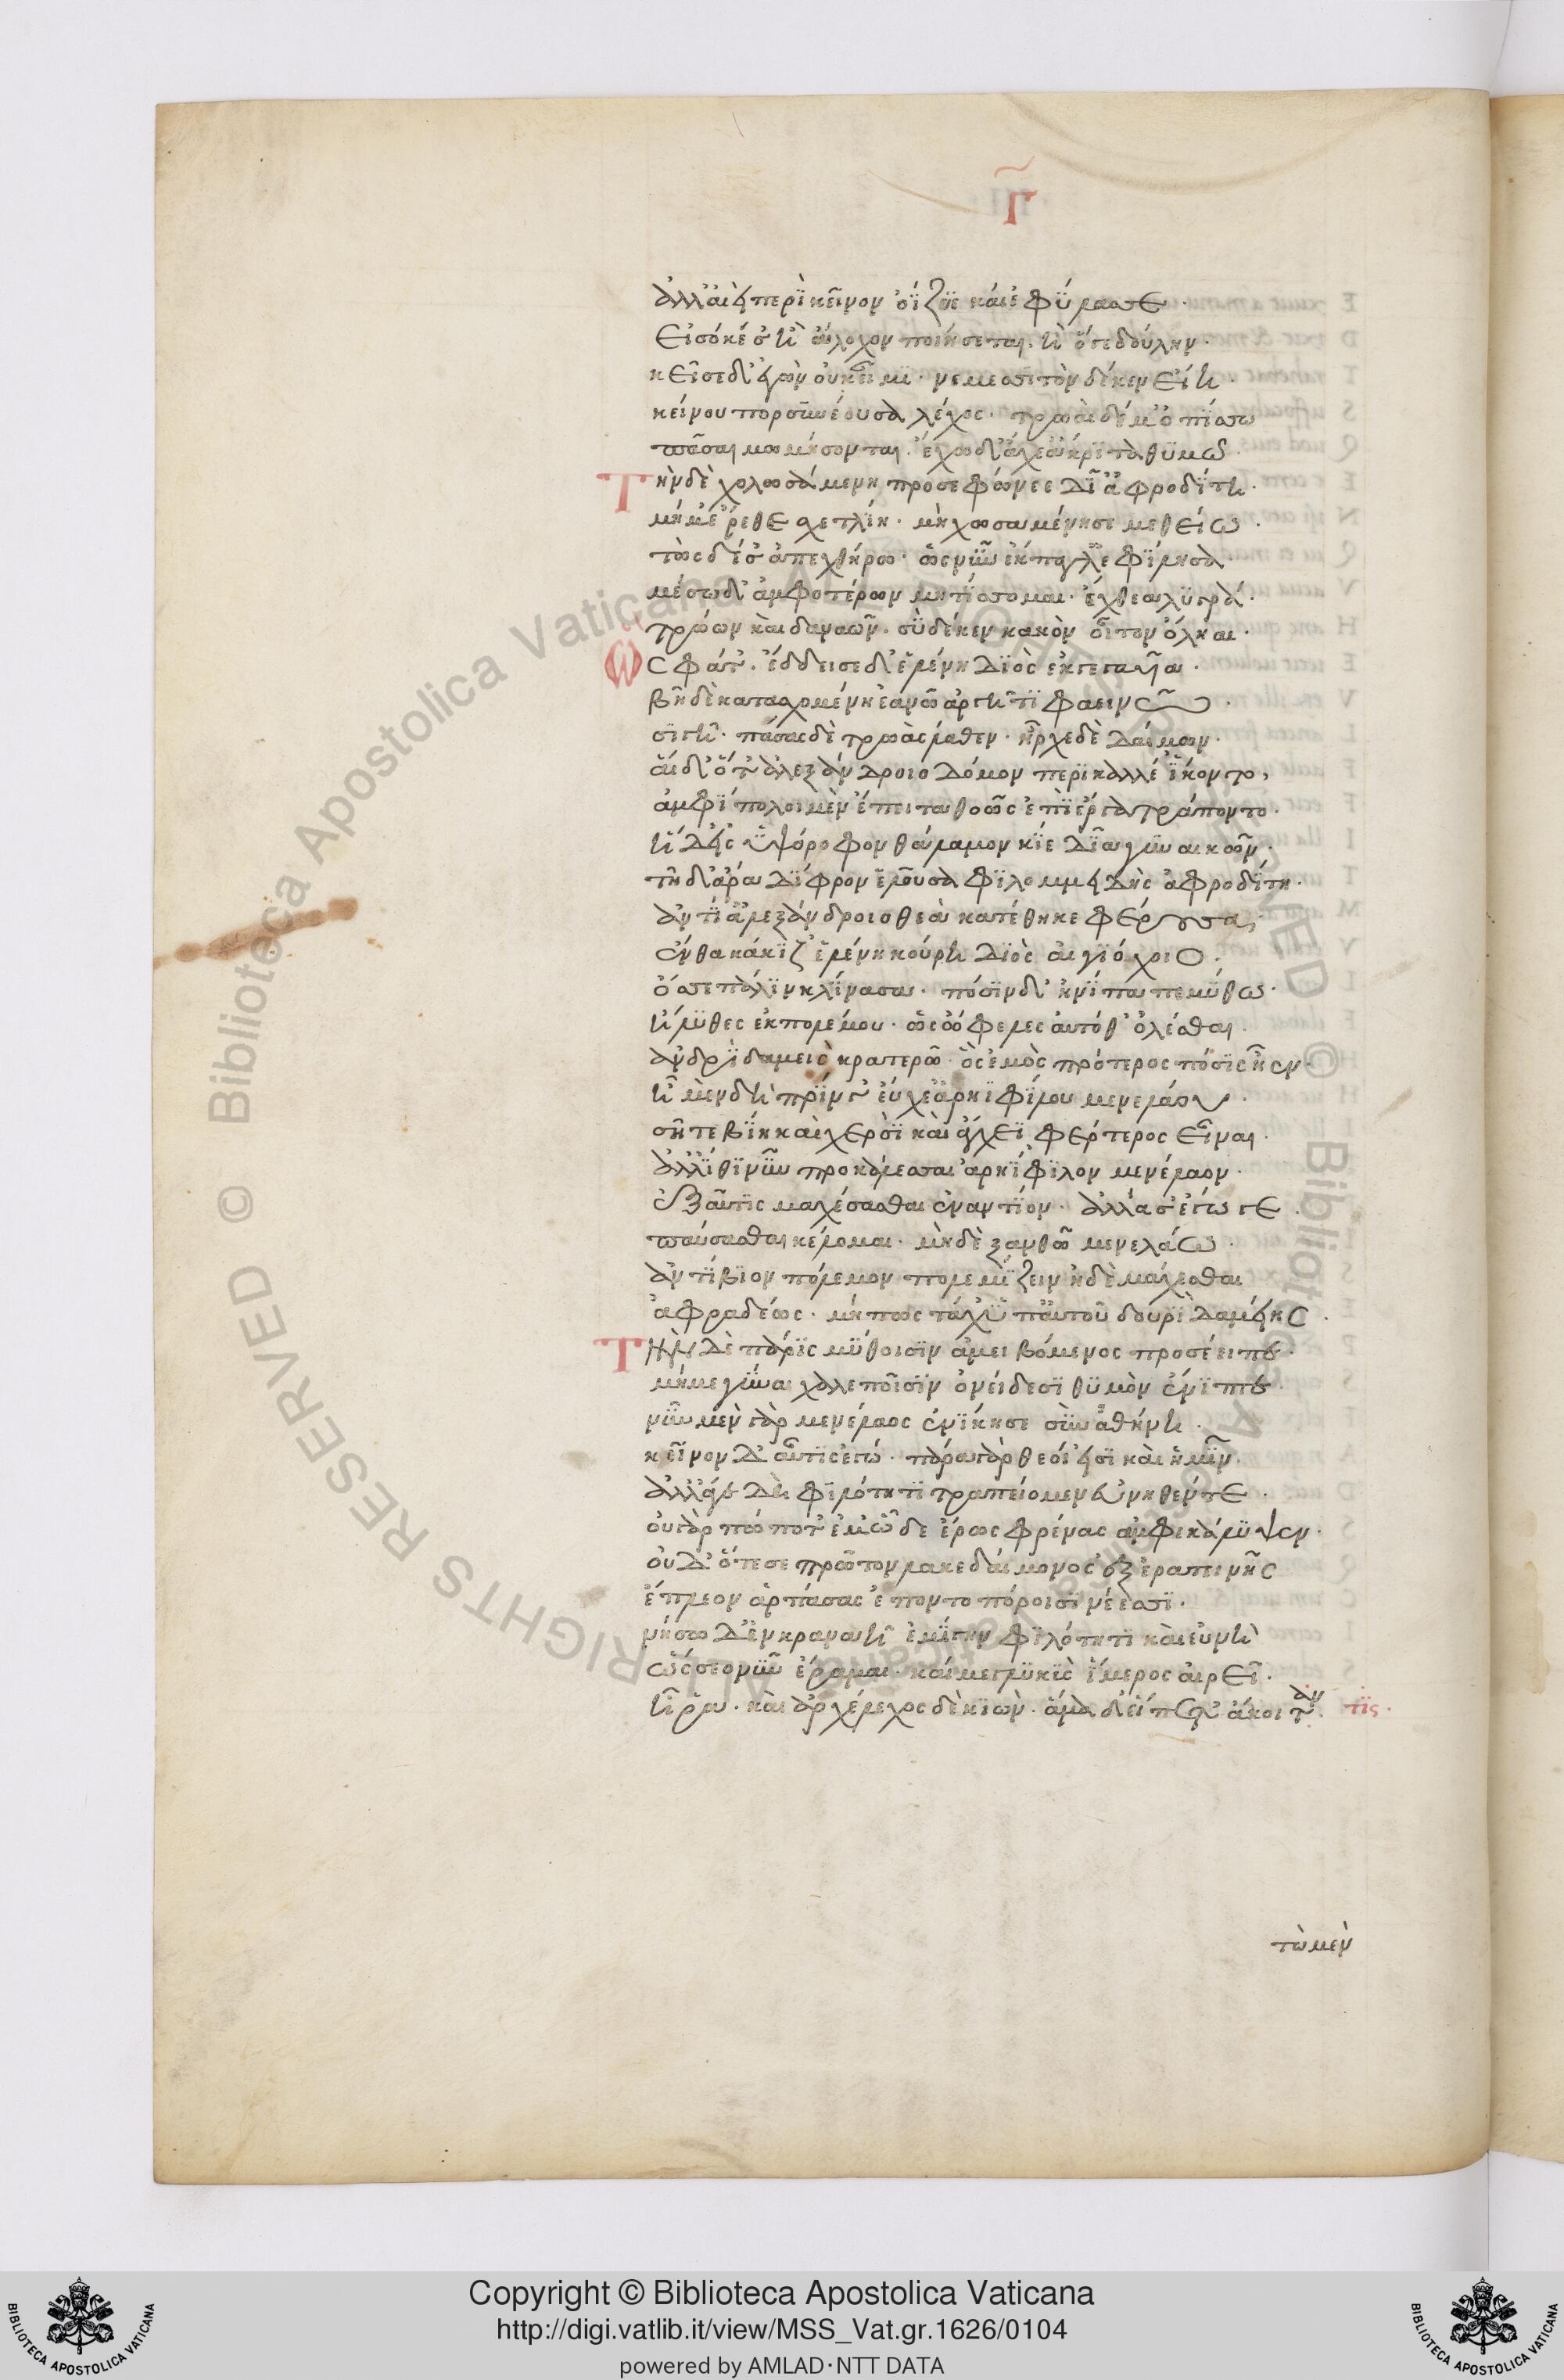 Γ
ἀλλ' αἰεὶ περὶ κεῖνον ὀΐζυε καί ἑ φύλασσε.
εἰσόκέ σ' ἢ ἄλοχον ποιήσεται. ἢ ὅγε δούλην.
κεῖσε δ' ἐγὼν οὐκ εἶμι. νεμεσσητὸν δέ κεν εἴη.
κείνου πορσυνέουσα λέχος. τρωαὶ δέ μ' ὀπίσσω
πᾶσαι μωμήσονται. ἔχω δ' ἄχε' ἄκριτα θυμῶ.
Τὴν δὲ χολωσαμένη προσεφώνεε δῖ' ἀφροδίτη.
μή μ' ἔρεθε σχετλίη. μὴ χωσαμένη σε μεθείω.
τὼς δέ σ' ἀπεχθήρω. ὡς νῦν ἔκπαγλ' ἐφίλησα.
μέσσω δ' ἀμφοτέρων μητίσομαι. ἔχθεα λυγρά.
τρώων καὶ δαναῶν. σὺ δέ κεν κακὸν οἶτον ὄληαι.
Ὣς φάτ'. ἔδδεισε δ' ἑλένη διὸς ἐκγεγαυῖα.
βῆ δὲ κατασχομένη ἑανῶ ἀργῆτι φαεινῶ.
σιγῆ. πάσας δὲ τρωὰς λάθεν. ἦρχε δὲ δαίμων.
αἱ δ' ὅτ' ἀλεξάνδροιο δόμον περικαλλέ' ἵκοντο,
ἀμφίπολοι μὲν ἔπειτα θοῶς ἐπὶ ἔργα τράποντο.
ἡ δ' εἰς ὑψόροφον θάλαμον κίε δῖα γυναικῶν.
τῆ δ' ἄρα δίφρον ἑλοῦσα φιλομμειδὴς ἀφροδίτη.
ἀντί' ἀλεξάνδροιο θεὰ κατέθηκε φέρουσα,
ἔνθα κάθιζ' ἑλένη κούρη διὸς αἰγιόχοιο.
ὄσσε πάλιν κλίνασα. πόσιν δ' ἠνίπαπε μύθω.
ἤλυθες ἐκ πολέμου. ὡς ὤφελες αὐτόθ' ὀλέσθαι.
ἀνδρὶ δαμεὶς κρατερῶ. ὃς ἐμὸς πρότερος πόσις ἦεν.
ἦ μὲν δὴ πρίν γ' εὔχε' ἀρηϊφίλου μενελάου.
σῆ τε βίη καὶ χερσὶ καὶ ἔγχεϊ φέρτερος εἶναι.
ἀλλ' ἴθι νῦν προκάλεσσαι ἀρηΐφιλον μενέλαον.
ἐξαῦτις μαχέσασθαι ἐναντίον. ἀλλά σ' ἐγώ γε
παύσασθαι κέλομαι. μηδὲ ξανθῶ μενελάω.
ἀντίβιον πόλεμον πολεμίζειν ἠδὲ μάχεσθαι
ἀφραδέως. μή πως τάχ' ὑπ' αὐτοῦ δουρὶ δαμείης.
Τὴν δὲ πάρις μύθοισιν ἀμειβόμενος προσέειπε.
μή με γύναι χαλεποῖσιν ὀνείδεσι θυμὸν ἔνιπτε.
νῦν μὲν γὰρ μενέλαος ἐνίκησε σὺν ἀθήνη.
κεῖνον δ' αὖτις ἐγώ. πάρα γὰρ θεοί εἰσι καὶ ἡμῖν.
ἀλλ' ἄγε δὴ φιλότητι τραπείομεν εὐνηθέντε.
οὐ γάρ πώ ποτ' ἐμ' ὧδε ἔρως φρένας ἀμφεκάλυψεν.
οὐδ' ὅτε σε πρῶτον λακεδαίμονος ἐξ ἐρατεινῆς
ἔπλεον ἁρπάσας ἐν ποντοπόροισι νέεσσι.
νήσω δ' ἐν κραναῆ ἐμίγην φιλότητι καὶ εὐνῆ
ὥς σεο νῦν ἔραμαι. καί με γλυκὺς ἵμερος αἱρεῖ.
ἦ ῥα. καὶ ἄρχε λέχος δὲ κιών. ἅμα δ' εἵπετ' ἄκοιτις.
τὼ μὲν